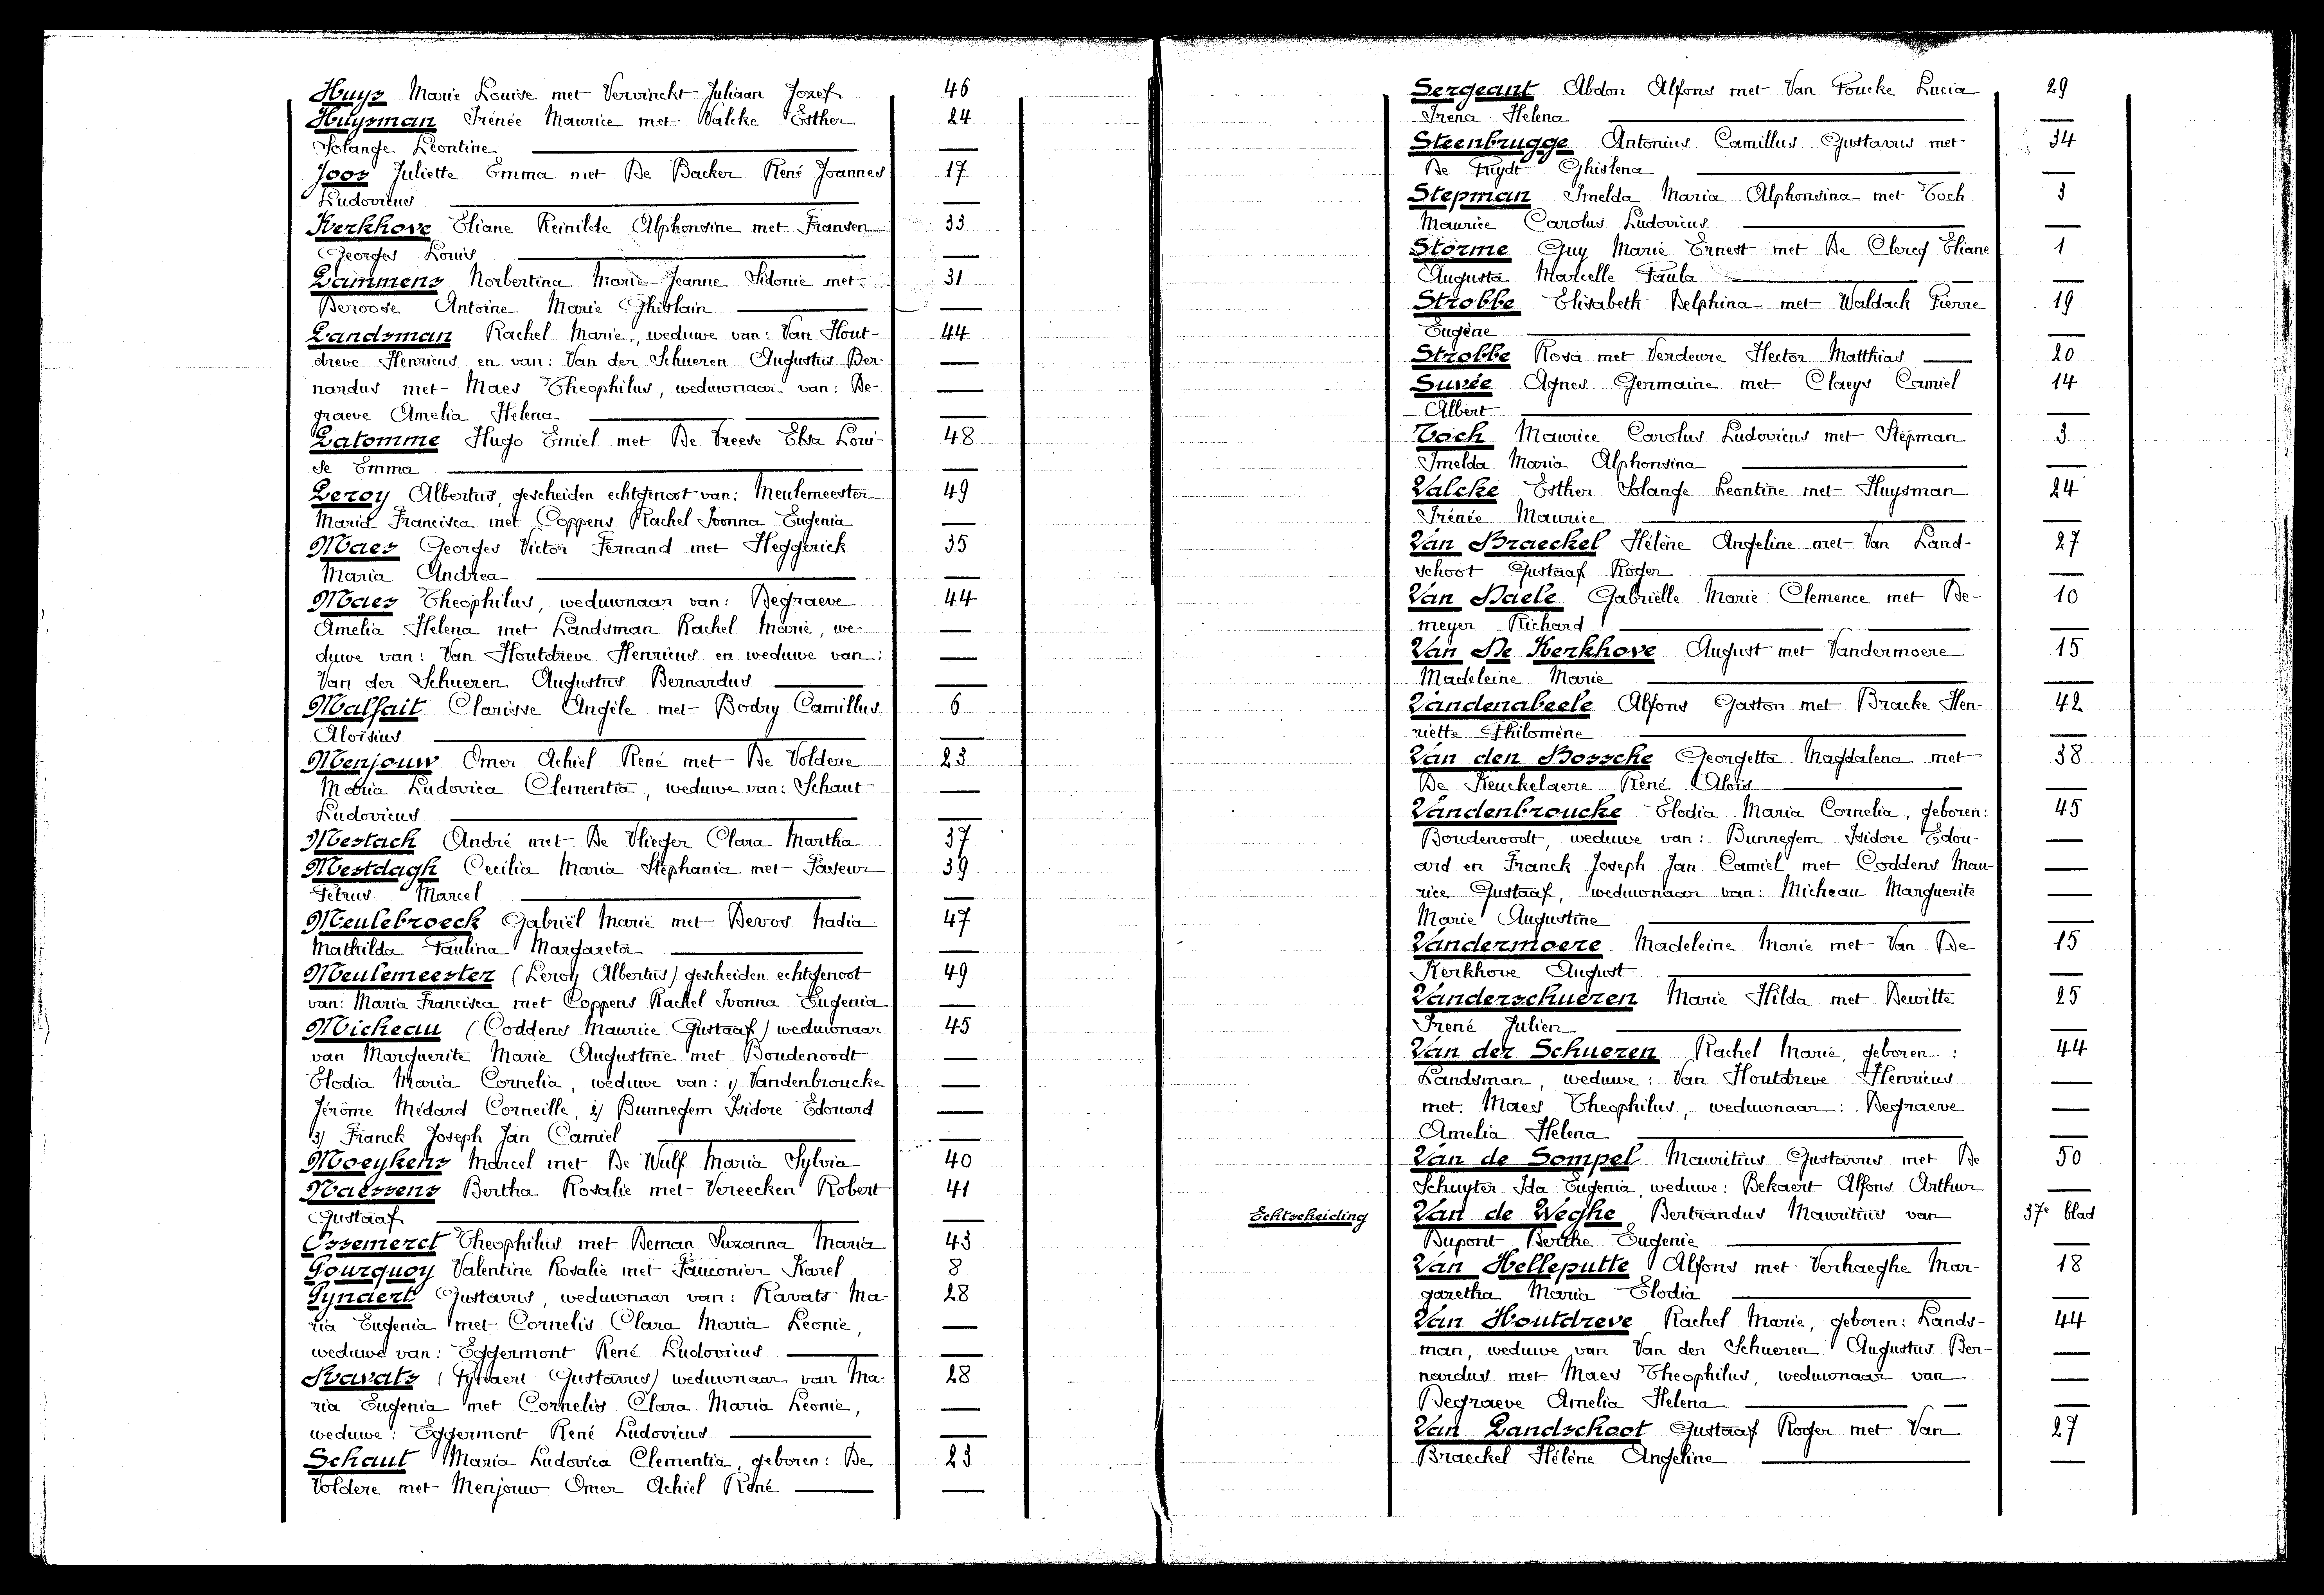 Huys Marie Louise met Vervinckt Juliaan Jozef 46
Huysman Irénée Maurice met Valcke Esther 24
Solange Léontine
Joos Juliette Emma met De Backer René Joannes 17
Ludovicus
Kerkhove Eliane Reinilde Alphonsine met Fransen 33
Georges Louis
Lammens Norbertina Marie-Jeanne Sidonie met 31
Deroose Antoine Marie Ghislain
Landsman Rachel Marie, weduwe van: Van Hout- 44
dreve Henricus en van: Van der Schueren Augustus Ber-
nardus met Maes Theophilus, weduwnaar van: De-
graeve Amelia Helena
Latomme Hugo Emiel met De Vreese Elsa Loui- 48
se Emma
Leroy Albertus, gescheiden echtgenoot van: Meulemeester 49
Maria Francisca met Coppens Rachel Ivonna Eugenia
Maes Georges Victor Fernand met Heggerick 35
Maria Andrea
Maes Theophilus, weduwnaar van: Degraeve 44
Amelia Helena met Landsman Rachel Marie, we-
duwe van: Van Houtdreve Henricus en weduwe van:
Van der Schueren Augustus Bernardus
Malfait Clarisse Angèle met Bodry Camillus 6
Aloïsius
Menjouw Omer Achiel René met De Voldere 23
Maria Ludovica Clementia, weduwe van: Schaut
Ludovicus
Mestach André met De Vlieger Clara Martha 37
Mestdagh Cecilia Maria Stephania met Pasteur 39
Petrus Marcel
Meulebroeck Gabriël Marie met Devos Nadia 47
Mathilda Paulina Margareta
Meulemeester (Leroy Albertus) gescheiden echtgenoot 49
van: Maria Francisca met Coppens Rachel Ivonna Eugenia
Micheau (Coddens Maurice Gustaaf) weduwnaar 45
van Marguerite Marie Augustine met Boudenoodt
Elodia Maria Cornelia, weduwe van: 1) Vandenbroucke
Jérôme Médard Corneille, 2) Bunnegem Isidore Edouard
3) Franck Joseph Jan Camiel
Moeykens Marcel met De Wulf Maria Sylvia 40
Naessens Bertha Rosalie met Vereecken Robert 41
Gustaaf
Ossemerct Theophilus met Deman Suzanna Maria 43
Pourquoy Valentine Rosalie met Fauconier Karel 8
Pynaert Gustavus, weduwnaar van: Ravats Ma- 28
ria Eugenia met Cornelis Clara Maria Leonie,
weduwe van: Eggermont René Ludovicus
Ravats (Pynaert Gustavus) weduwnaar van Ma- 28
ria Eugenia met Cornelis Clara Maria Leonie,
weduwe: Eggermont René Ludovicus
Schaut Maria Ludovica Clementia, geboren: De 23
Voldere met Menjouw Omer Achiel René
Sergeant Abdon Alfons met Van Poucke Lucia 29
Irena Helena
Steenbrugge Antonius Camillus Gustavus met 34
De Pruydt Ghislena
Stepman Imelda Maria Alphonsina met Toch 3
Maurice Carolus Ludovicus
Storme Guy Marie Ernest met De Clercq Eliane 1
Augusta Marcelle Paula
Strobbe Elisabeth Delphina met Waldack Pierre 19
Eugène
Strobbe Rosa met Verdeure Hector Matthias 20
Suvée Agnes Germaine met Claeys Camiel 14
Albert
Toch Maurice Carolus Ludovicus met Stepman 3
Imelda Maria Alphonsina
Valcke Esther Solange Leontine met Huysman 24
Irénée Maurice
Van Braeckel Hélène Angeline met Van Land- 27
schoot Gustaaf Roger
Van Daele Gabriëlle Marie Clemence met De- 10
meyer Richard
Van De Kerkhove August met Vandermoere 15
Madeleine Marie
Vandenabeele Alfons Gaston met Bracke Hen- 42
riette Philomène
Van den Bossche Georgetta Magdalena met 38
De Keuckelaere René Alois
Vandenbroucke Elodia Maria Cornelia, geboren: 45
Boudenoodt, weduwe van: Bunnegem Isidore Edou-
ard en Franck Joseph Jan Camiel met Coddens Mau-
rice Gustaaf, weduwnaar van: Micheau Marguerite
Marie Augustine
Vandermoere Madeleine Marie met Van De 15
Kerkhove August
Vanderschueren Marie Hilda met Dewitte 25
Irené Julien
Van der Schueren Rachel Marie, geboren: 44
Landsman, weduwe: Van Houtdreve Henricus
met Maes Theophilus, weduwnaar: Degraeve
Amelia Helena
Van de Sompel Mauritius Gustavus met De 50
Schuyter Ida Eugenia, weduwe: Bekaert Alfons Arthur
Echtscheiding Van de Weghe Bertrandus Mauritius van 37e blad
Dupont Berthe Eugenie
Van Helleputte Alfons met Verhaeghe Mar- 18
garetha Maria Elodia
Van Houtdreve Rachel Marie, geboren: Lands- 44
man, weduwe van Van der Schueren Augustus Ber-
nardus met Maes Theophilus, weduwnaar van
Degraeve Amelia Helena
Van Landschoot Gustaaf Roger met Van 27
Braeckel Hélène Angeline